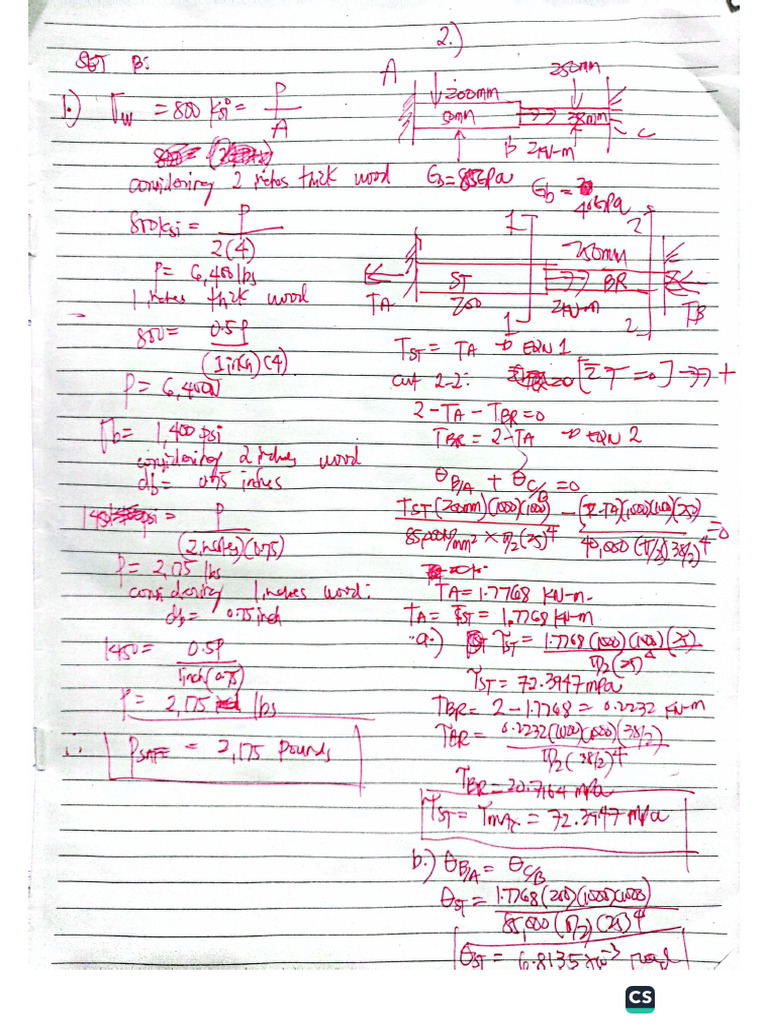 SET B:
1.) σw = 800 ksi = P/A
considering 2 inches thick wood
800ksi = P / 2(4)
P = 6,400 lbs
1 inches thick wood
800 = 0.5P / (1 inch)(4)
P = 6,400
σb = 1,400 psi
considering 2 inches wood
db = 0.75 inches
= P / (2 inches)(0.75)
P = 2,175 lbs
considering 1 inches wood:
db = 0.75 inch
1450 = 0.5P / 1 inch(0.75)
P = 2,175 lbs
∴ PSAFE = 2,175 pounds
2.)
A 200mm 250mm
50mm 38mm
b 2kN-m C
Gs = 85GPa Gb = 40GPa
1 2
250mm
TA ST BR TB
200 2kN-m
1 2
TST = TA → EQN 1
cut 2-2: [ΣT=0] →→ +
2 - TA - TBR = 0
TBR = 2 - TA → EQN 2
θB/A + θC/B = 0
TST (200mm)(1000)(1000) / 85,000N/mm² × π/2 (25)⁴ - (2-TA)(1000)(1000)(250) / 40,000 (π/2)(38/2)⁴ = 0
TA = 1.7768 kN-m.
TA = TST = 1.7768 kN-m
a.) τST = 1.7768(1000)(1000)(25) / π/2 (25)⁴
τST = 72.3947 mPa
TBR = 2 - 1.7768 = 0.2232 kN-m
τBR = 0.2232(1000)(1000)(38/2) / π/2 (38/2)⁴
τBR = 20.7164 mPa
τST = τmax = 72.3947 mPa
b.) θB/A = θC/B
θST = 1.7768(200)(1000)(1000) / 85,000 (π/2)(25)⁴
θST = 6.8135 x10⁻³ rad
CS